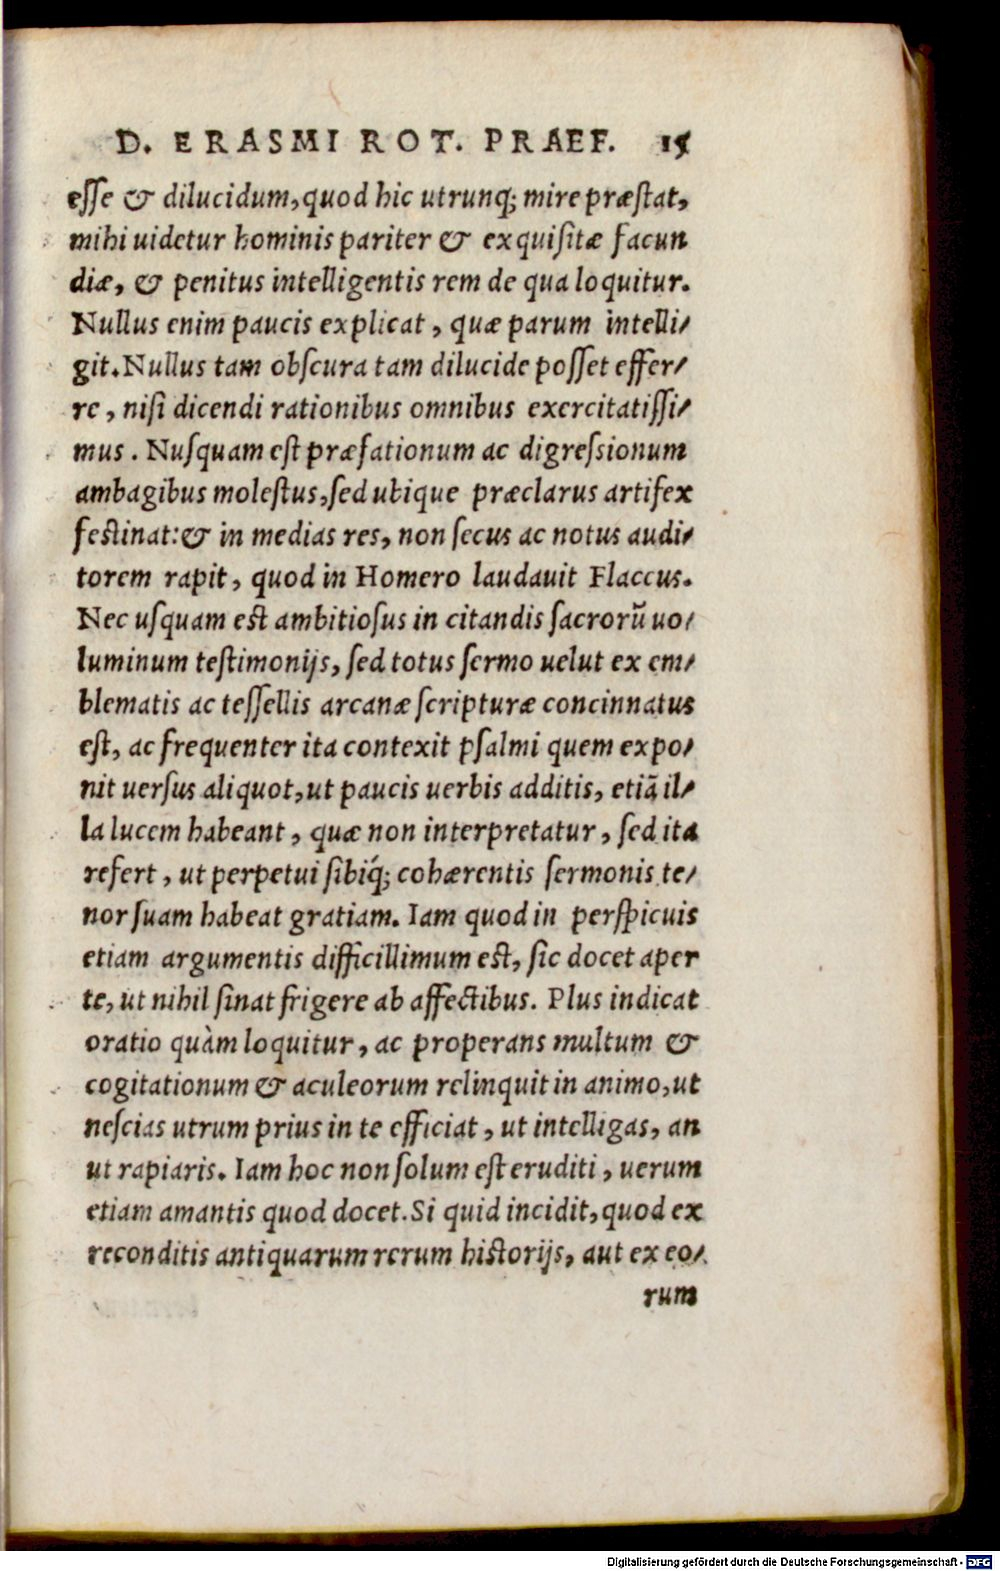 D. ERASMI ROT. PRAEF. 15
esse & dilucidum, quod hic utrunq; mire præstat,
mihi uidetur hominis pariter & exquisitæ facun
diæ, & penitus intelligentis rem de qua loquitur.
Nullus enim paucis explicat, quæ parum intelli/
git. Nullus tam obscura tam dilucide posset effer/
re, nisi dicendi rationibus omnibus exercitatissi/
mus. Nusquam est præfationum ac digressionum
ambagibus molestus, sed ubique præclarus artifex
festinat: & in medias res, non secus ac notus audi/
torem rapit, quod in Homero laudauit Flaccus.
Nec usquam est ambitiosus in citandis sacrorũ uo/
luminum testimonijs, sed totus sermo uelut ex em/
blematis ac tessellis arcanæ scripturæ concinnatus
est, ac frequenter ita contexit psalmi quem expo/
nit uersus aliquot, ut paucis uerbis additis, etiã il/
la lucem habeant, quæ non interpretatur, sed ita
refert, ut perpetui sibiq́; cohærentis sermonis te/
nor suam habeat gratiam. Iam quod in perspicuis
etiam argumentis difficillimum est, sic docet aper
te, ut nihil sinat frigere ab affectibus. Plus indicat
oratio quàm loquitur, ac properans multum &
cogitationum & aculeorum relinquit in animo, ut
nescias utrum prius in te efficiat, ut intelligas, an
ut rapiaris. Iam hoc non solum est eruditi, uerum
etiam amantis quod docet. Si quid incidit, quod ex
reconditis antiquarum rerum historijs, aut ex eo/
rum
Digitalisierung gefördert durch die Deutsche Forschungsgemeinschaft - DFG